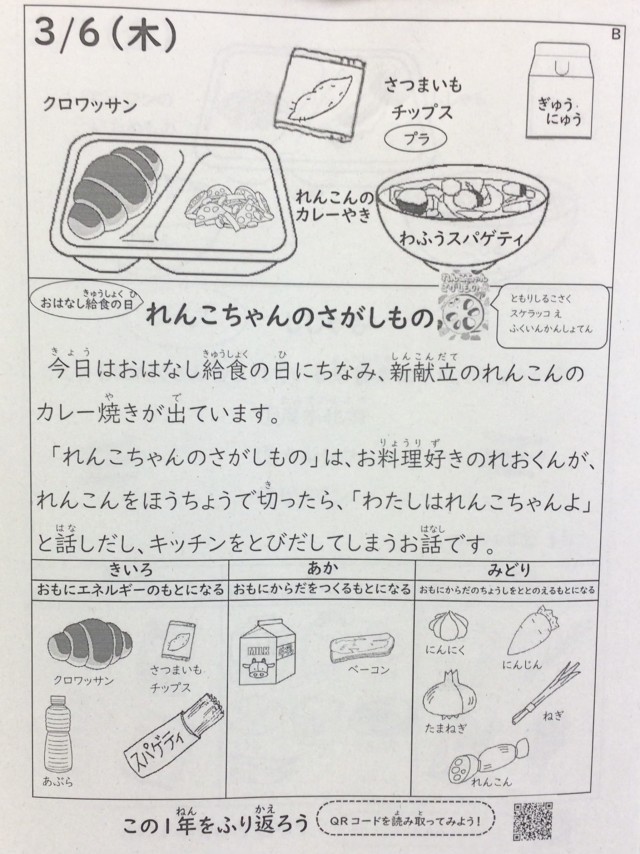 3/6(木)
B
クロワッサン
さつまいも
チップス
プラ
ぎゅう
にゅう
れんこんの
カレーやき
わふうスパゲティ
おはなし給食の日
きゅうしょく ひ
れんこちゃんのさがしもの
ともりしるこさく
スケラッコ え
ふくいんかんしょてん
きょう きゅうしょく ひ しんこんだて
今日はおはなし給食の日にちなみ、新献立のれんこんの
や で
カレー焼きが出ています。
りょうり ず
「れんこちゃんのさがしもの」は、お料理好きのれおくんが、
き
れんこんをほうちょうで切ったら、「わたしはれんこちゃんよ」
はな はなし
と話しだし、キッチンをとびだしてしまうお話です。
きいろ あか みどり
おもにエネルギーのもとになる おもにからだをつくるもとになる おもにからだのちょうしをととのえるもとになる
クロワッサン
さつまいも
チップス
あぶら
スパゲティ
MILK
ベーコン
にんにく
にんじん
たまねぎ
ねぎ
れんこん
ねん かえ
この1年をふり返ろう
よ と
QRコードを読み取ってみよう!